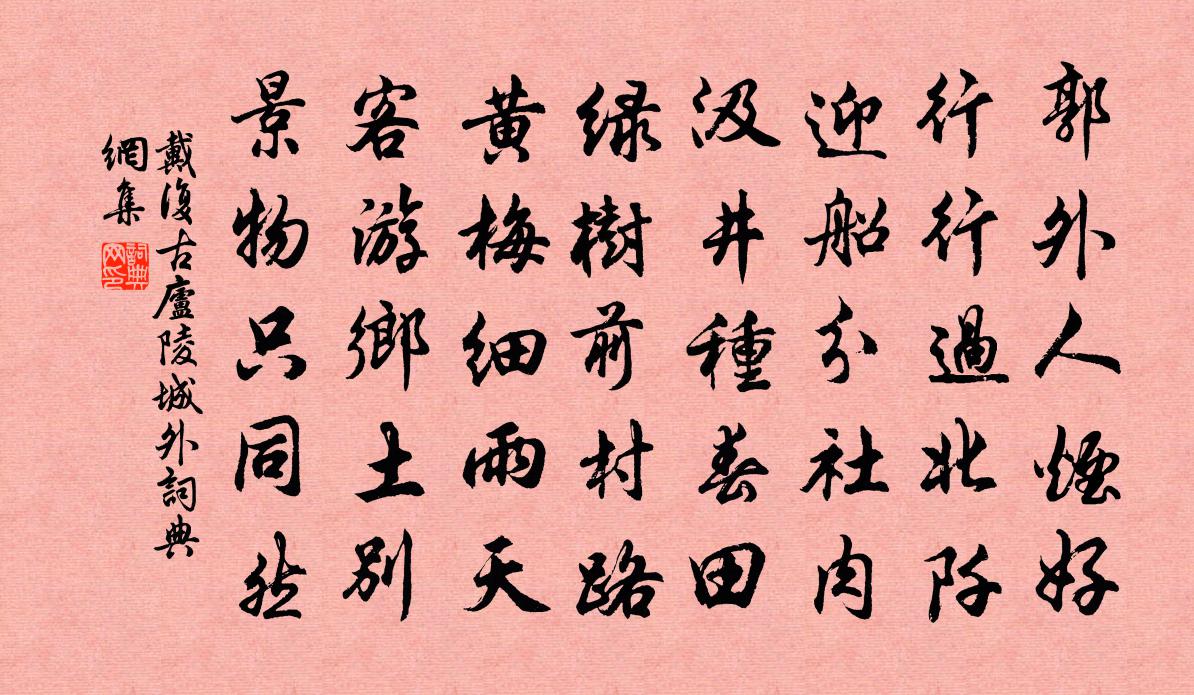 郭外人煙好
行行過北阡
迎船分社肉
汲井種春田
绿樹前村路
黄梅细雨天
客游鄉土别
景物只同然
戴復古廬陵城外詞典
網集
詞典
网印